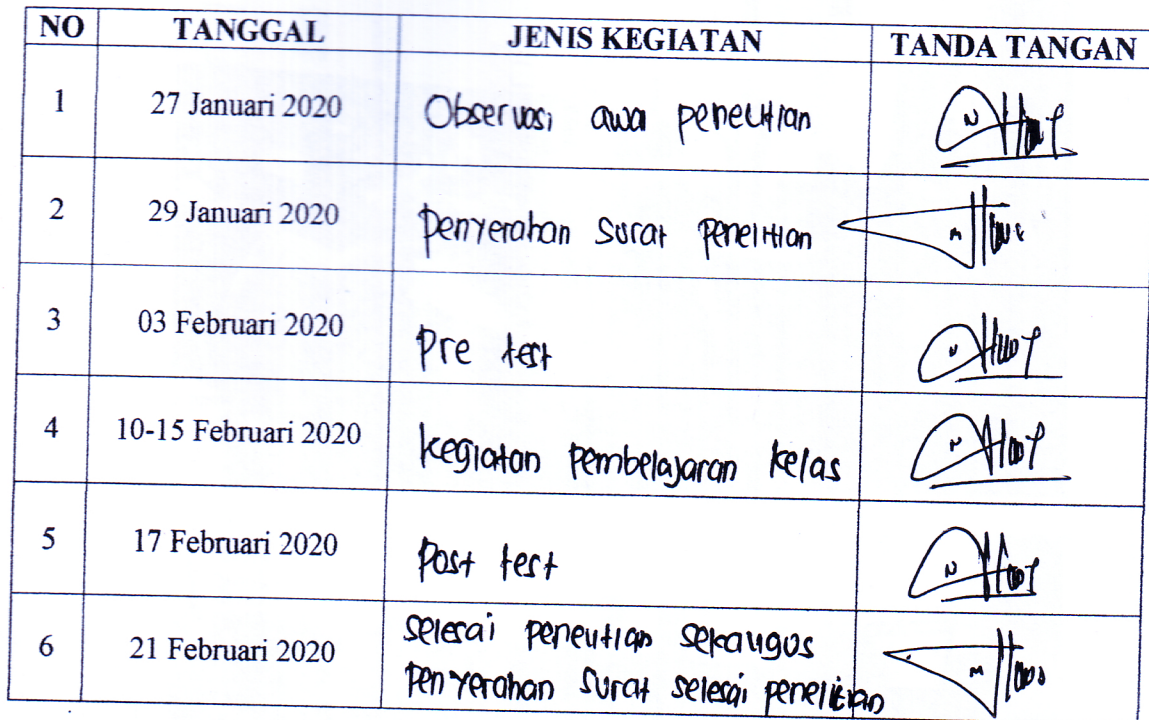 NO TANGGAL JENIS KEGIATAN TANDA TANGAN
1 27 Januari 2020 Observasi awal penelitian
2 29 Januari 2020 Penyerahan Surat Penelitian
3 03 Februari 2020 Pre test
4 10-15 Februari 2020 kegiatan Pembelajaran kelas
5 17 Februari 2020 Post test
6 21 Februari 2020 selesai penelitian sekaligus
penyerahan Surat selesai penelitian